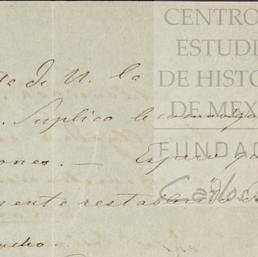 CENTRO
ESTUDI
DE HISTO
DE MEX
FUNDAC
Carlos
de V. la
Suplico le comunique
ones. — Espero
mente restablecido
ucho.